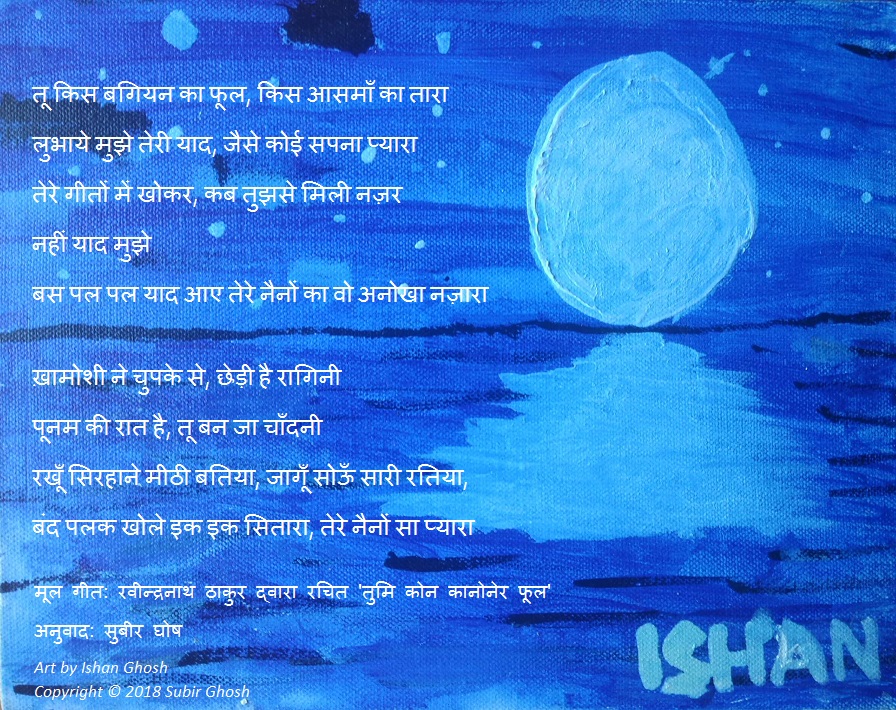 तू किस बगियन का फूल, किस आसमाँ का तारा
लुभाये मुझे तेरी याद, जैसे कोई सपना प्यारा
तेरे गीतों में खोकर, कब तुझसे मिली नज़र
नहीं याद मुझे
बस पल पल याद आए तेरे नैनों का वो अनोखा नज़ारा
ख़ामोशी ने चुपके से, छेड़ी है रागिनी
पूनम की रात है, तू बन जा चाँदनी
रखूँ सिरहाने मीठी बतिया, जागूँ सोऊँ सारी रतिया,
बंद पलक खोले इक इक सितारा, तेरे नैनों सा प्यारा
मूल गीत: रवीन्द्रनाथ ठाकुर दवारा रचित 'तुमि कोन कानोनेर फूल'
अनुवाद: सुबीर घोष
Art by Ishan Ghosh
Copyright © 2018 Subir Ghosh
ISHAN